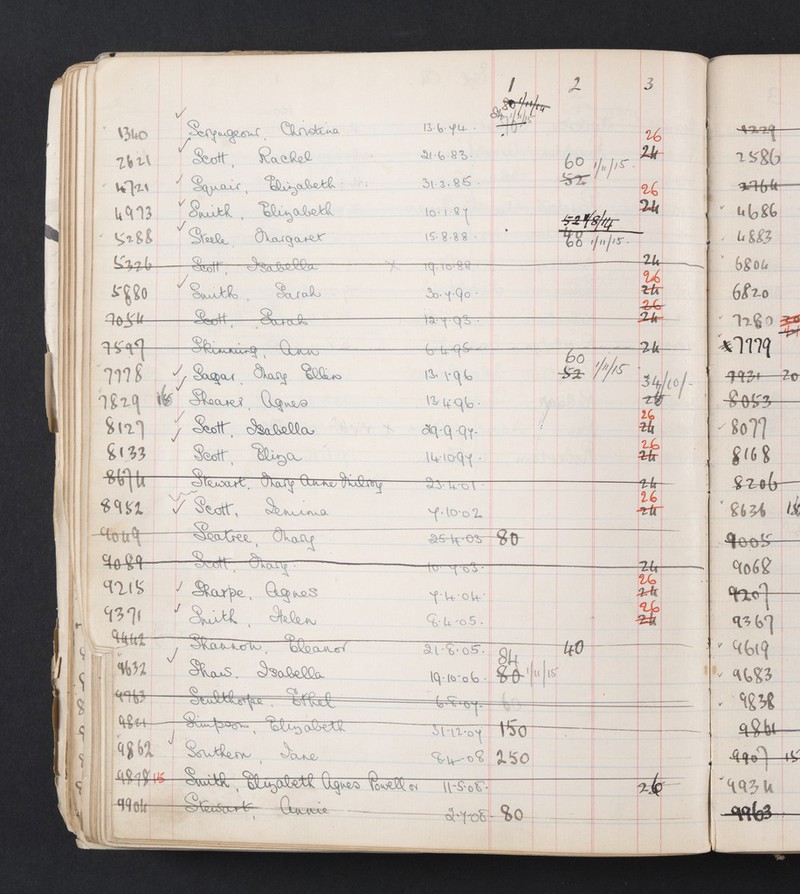 1 2 3
1340 Scrymgeour, Christina 13.6.74.
26
2621 Scott, Rachel 21.6.83. 60 1/11/15. 24
52
4721 Squair, Elizabeth 31.3.85. 26
4973 Smith, Elizabeth 10.1.87 24
5288 Steele, Margaret 15.8.88. 60 1/11/15.
5326 Scott, Isabella X 19.10.88 24
26
5880 Smith, Sarah 30.7.90. 24
26
7054 Scott, Sarah 12.7.93. 24
7597 Skinning, Ann 6.4.95 24
60
7778 Sagar, Mary Ellen 13.1.96 52 1/11/15 34/10/-
7829 Shearer, Agnes 13.4.96. 28
26
8127 Scott, Isabella 29.9.97. 24
26
8133 Scott, Eliza 14.10.97. 24
8674 Stewart, Mary Anne Milroy 23.4.01. 24
26
8952 Scott, Jemima 7.10.02 24
9049 Seatree, Mary 25.4.03 80
9089 Scott, Mary 10.7.03. 24
26
9215 Sharpe, Agnes 7.4.04. 24
26
9371 Smith, Helen 8.4.05. 24
9442 Shannon, Eleanor 21.8.05. 40
84
9632 Shaw, Isabella 19.10.06. 80 1/11/15
9763 Sculthorpe, Ethel 6.8.07.
Simpson, Elizabeth 31.12.07 150
9862 Southern, Jane 8.4.08 250
9878 15 Smith, Elizabeth Agnes Powell or 11.5.08. 26
9904 Stewart, Annie 2.7.08. 80
2586
2764
4686
4883
6804
6820
7280
7779
7931 20
8053
8077
8168
8206
8636
9005
9068
9207
9367
9619
9683
9838
9861
9907 15
9934
9963